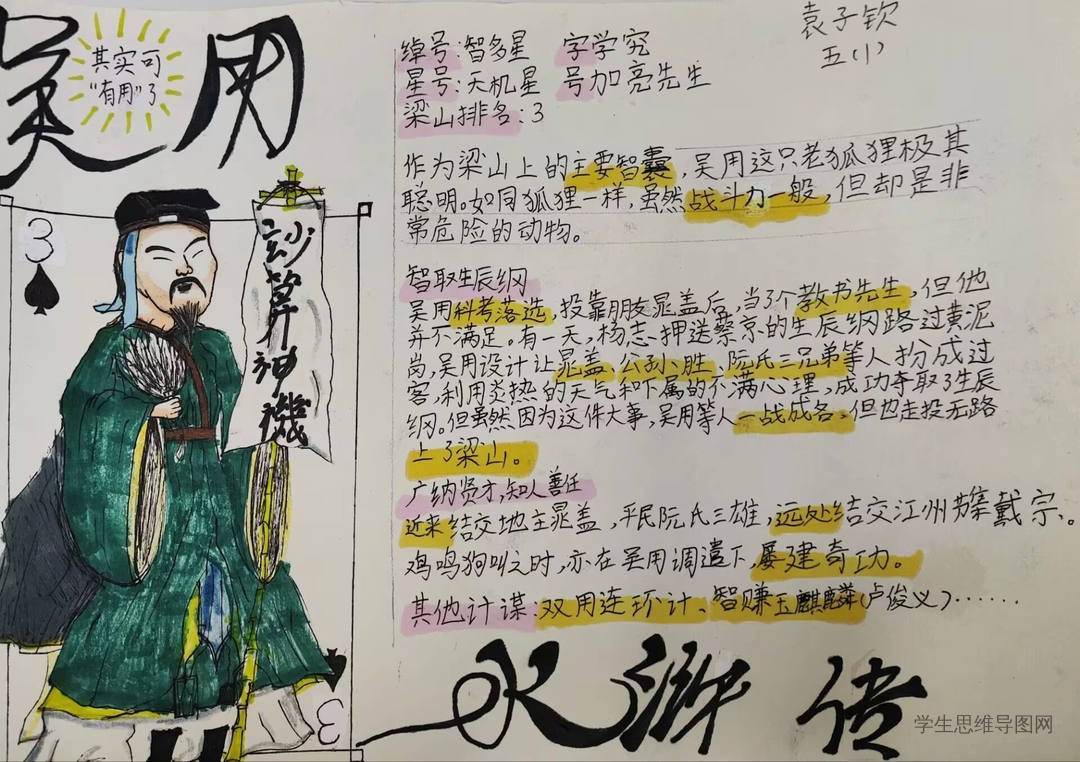 吴用
其实可
“有用”了
袁子钦
五(1)
绰号:智多星 字学究
星号:天机星 号加亮先生
梁山排名:3
作为梁山上的主要智囊,吴用这只老狐狸极其
聪明。如同狐狸一样,虽然战斗力一般,但却是非
常危险的动物。
智取生辰纲
吴用科考落选,投靠朋友晁盖后,当了个教书先生,但他
并不满足。有一天,杨志押送蔡京的生辰纲路过黄泥
岗,吴用设计让晁盖、公孙胜、阮氏三兄弟等人扮成过
客,利用炎热的天气和下属的不满心理,成功夺取了生辰
纲。但虽然因为这件大事,吴用等人一战成名,但也走投无路
上了梁山。
广纳贤才,知人善任
近来结交地主晁盖,平民阮氏三雄,远处结交江州戴宗。
鸡鸣狗叫之时,亦在吴用调遣下,屡建奇功。
其他计谋:双用连环计、智赚玉麒麟(卢俊义)……
3
妙算神機
3
水浒传
学生思维导图网